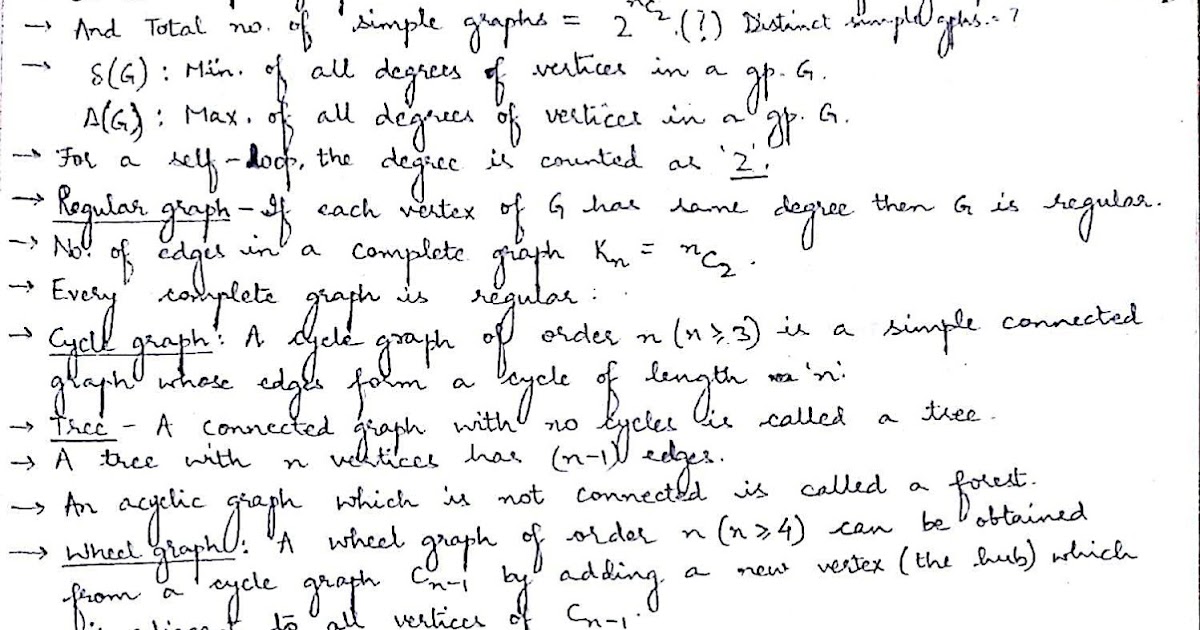 → And Total no. of simple graphs = 2^nC2 .(?) Distinct simple gphs. = ?
→ δ(G) : Min. of all degrees of vertices in a gp. G.
Δ(G) : Max. of all degrees of vertices in a gp. G.
→ For a self-loop, the degree is counted as '2'.
→ Regular graph - If each vertex of G has same degree then G is regular.
→ No. of edges in a complete graph Kn = nC2 .
→ Every complete graph is regular :
→ Cycle graph : A cycle graph of order n (n ≥ 3) is a simple connected
graph whose edges form a cycle of length 'n'.
→ Tree - A connected graph with no cycles is called a tree.
→ A tree with n vertices has (n-1) edges.
→ An acyclic graph which is not connected is called a forest.
→ Wheel graph : A wheel graph of order n (n ≥ 4) can be obtained
from a cycle graph Cn-1 by adding a new vertex (the hub) which
to all vertices of Cn-1.